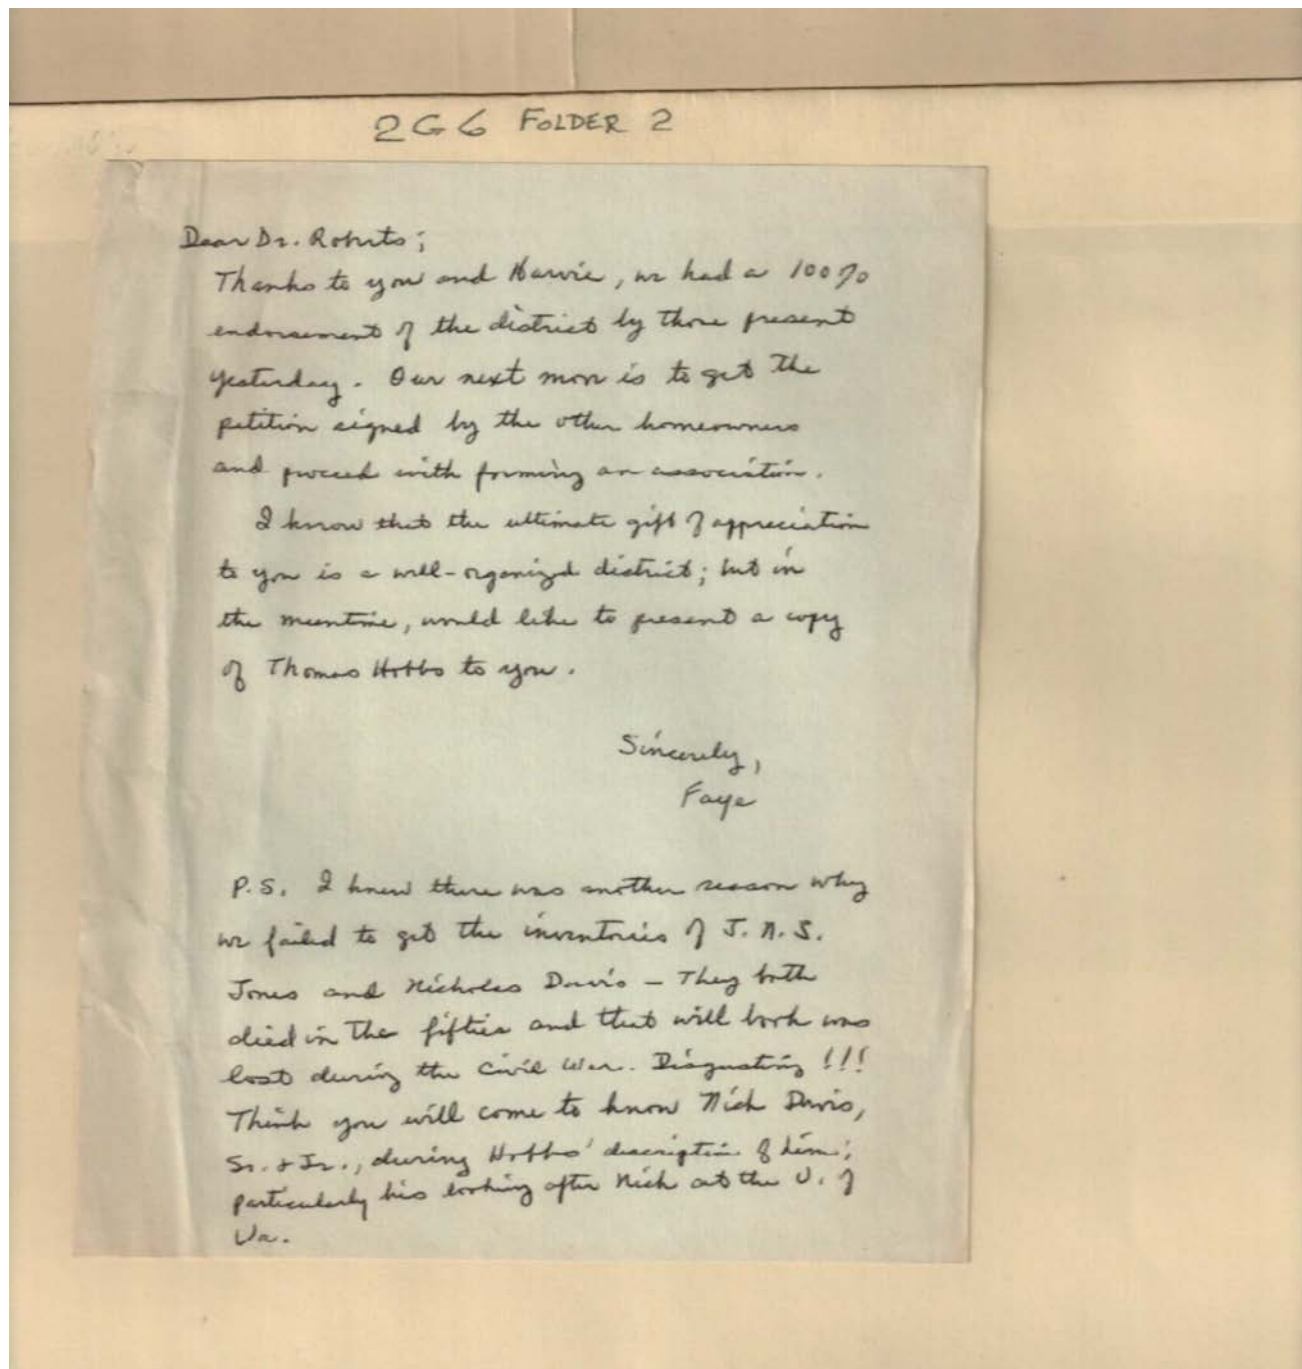 2G6 FOLDER 2
Dear Dr. Roberts;
Thanks to you and Harvie, we had a 100%
endorsement of the district by those present
yesterday. Our next move is to get the
petition signed by the other homeowners
and proceed with forming an association.
I know that the ultimate gift of appreciation
to you is a well-organized district; but in
the meantime, would like to present a copy
of Thomas Hobbs to you.
Sincerely,
Faye
P.S. I knew there was another reason why
we failed to get the inventories of J. N. S.
Jones and Nicholas Davis - They both
died in the fifties and that will book was
lost during the Civil War. Disgusting!!!
Think you will come to know Nich Davis,
Sr. & Jr., during Hobbs' description of him;
particularly his looking after Nich at the U. of
Va.